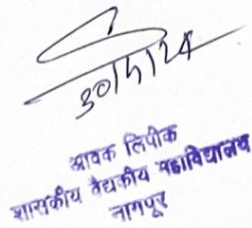 30/5/24
आवक लिपीक
शासकीय वैद्यकीय महाविद्यालय
नागपूर